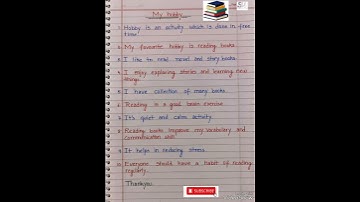 My hobby
1. Hobby is an activity which is done in free
time.
2. My favorite hobby is reading books.
3. I like to read novel and story books.
4. I enjoy exploring stories and learning new
things.
5. I have collection of many books.
6. Reading is a good brain exercise.
7. It's quiet and calm activity.
8. Reading books improve my vocabulary and
communication skill.
9. It helps in reducing stress.
10. Everyone should have a habit of reading
regularly.
Thankyou
SUBSCRIBE